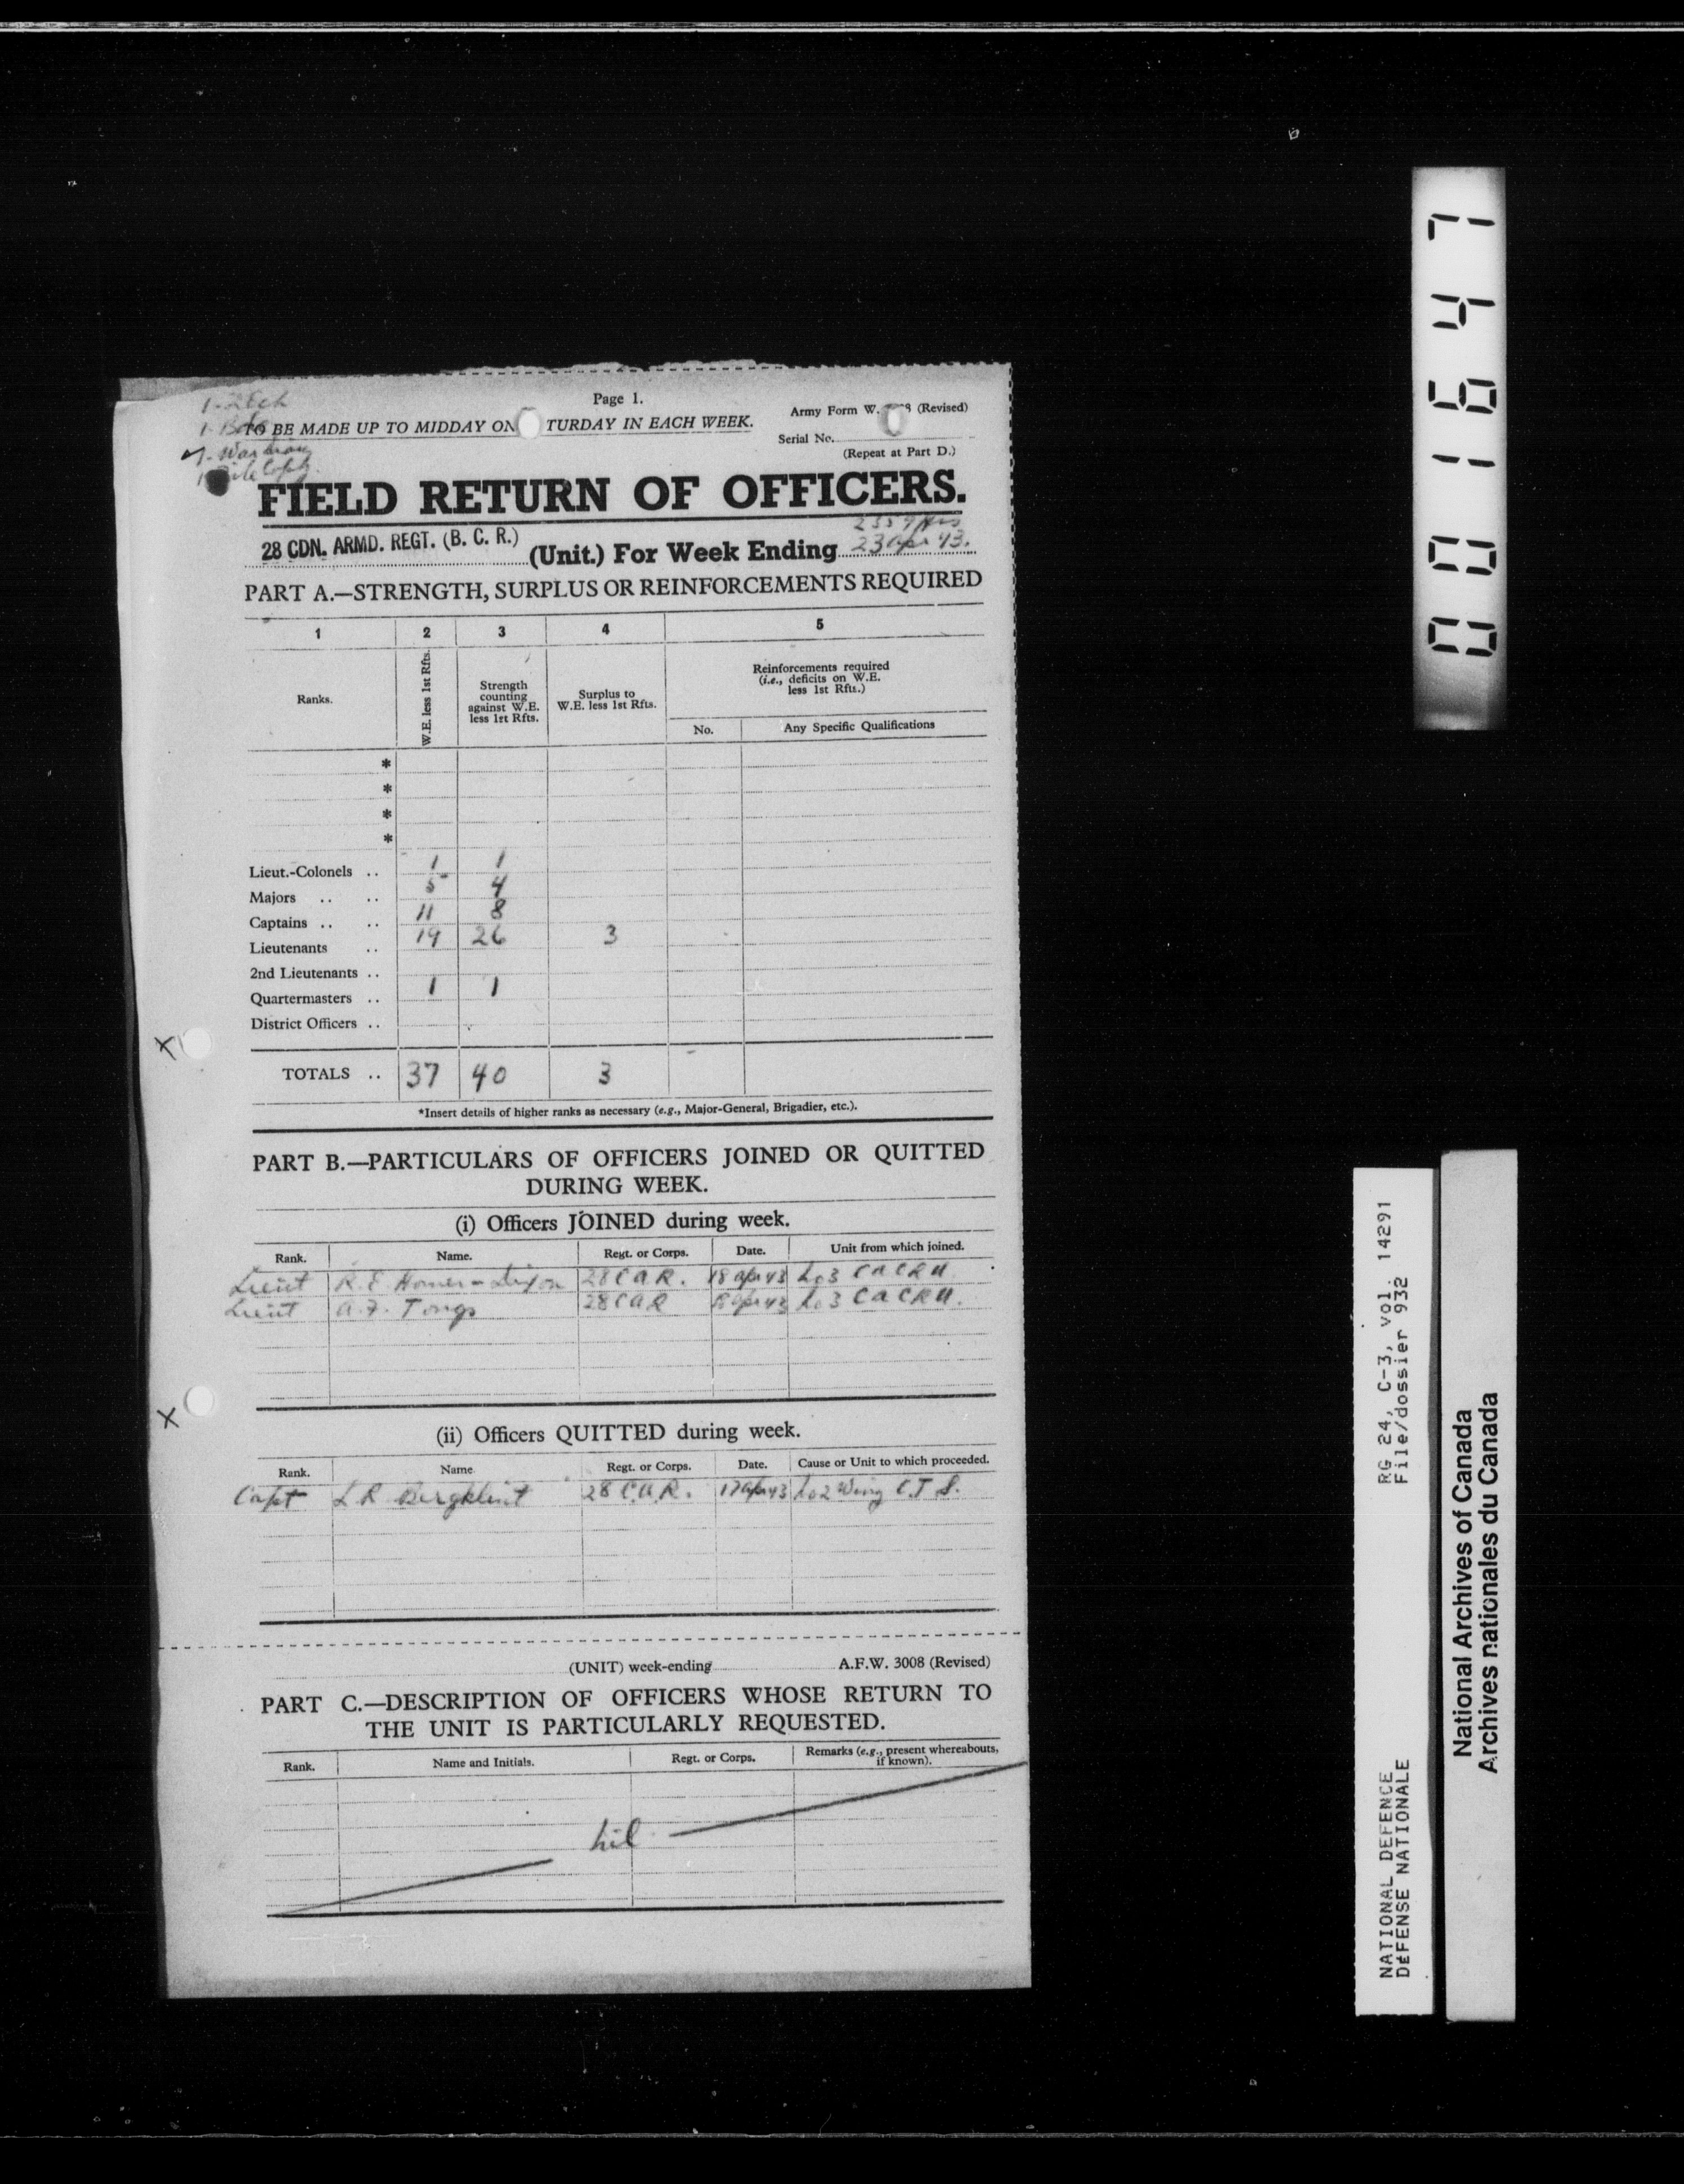 1-2 Ech
1-Bde
Page 1.
Army Form W. 8 (Revised)
TO BE MADE UP TO MIDDAY ON TURDAY IN EACH WEEK.
Serial No.
1-War Diary
(Repeat at Part D.)
1 File Copy.
FIELD RETURN OF OFFICERS.
2359 Hrs
28 CDN. ARMD. REGT. (B. C. R.) (Unit.) For Week Ending 23 Apr 43.
PART A.—STRENGTH, SURPLUS OR REINFORCEMENTS REQUIRED
1 2 3 4 5
Ranks.
W.E. less 1st Rfts.
Strength
counting
against W.E.
less 1rt Rfts.
Surplus to
W.E. less 1st Rfts.
Reinforcements required
(i.e., deficits on W.E.
less 1st Rfts.)
No. Any Specific Qualifications
*
*
*
*
Lieut.-Colonels .. 1 1
Majors .. .. 5 4
Captains .. .. 11 8
Lieutenants .. 19 26 3
2nd Lieutenants ..
Quartermasters .. 1 1
District Officers ..
TOTALS .. 37 40 3
*Insert details of higher ranks as necessary (e.g., Major-General, Brigadier, etc.).
PART B.—PARTICULARS OF OFFICERS JOINED OR QUITTED
DURING WEEK.
(i) Officers JOINED during week.
Rank. Name. Regt. or Corps. Date. Unit from which joined.
Lieut R.E. Homer-Dixon 28 C A R. 18 Apr 43 No 3 C A C R U
Lieut A.F. Tongs 28 C A R 18 Apr 43 No 3 C A C R U.
(ii) Officers QUITTED during week.
Rank. Name Regt. or Corps. Date. Cause or Unit to which proceeded.
Capt L R 28 C.A.R. 17 Apr 43 No 2 Wing C.T.S.
(UNIT) week-ending A.F.W. 3008 (Revised)
PART C.—DESCRIPTION OF OFFICERS WHOSE RETURN TO
THE UNIT IS PARTICULARLY REQUESTED.
Rank. Name and Initials. Regt. or Corps. Remarks (e.g., present whereabouts,
if known).
Nil
X
X
001647
NATIONAL DEFENCE RG 24, C-3, vol. 14291
DÉFENSE NATIONALE File/dossier 932
National Archives of Canada
Archives nationales du Canada